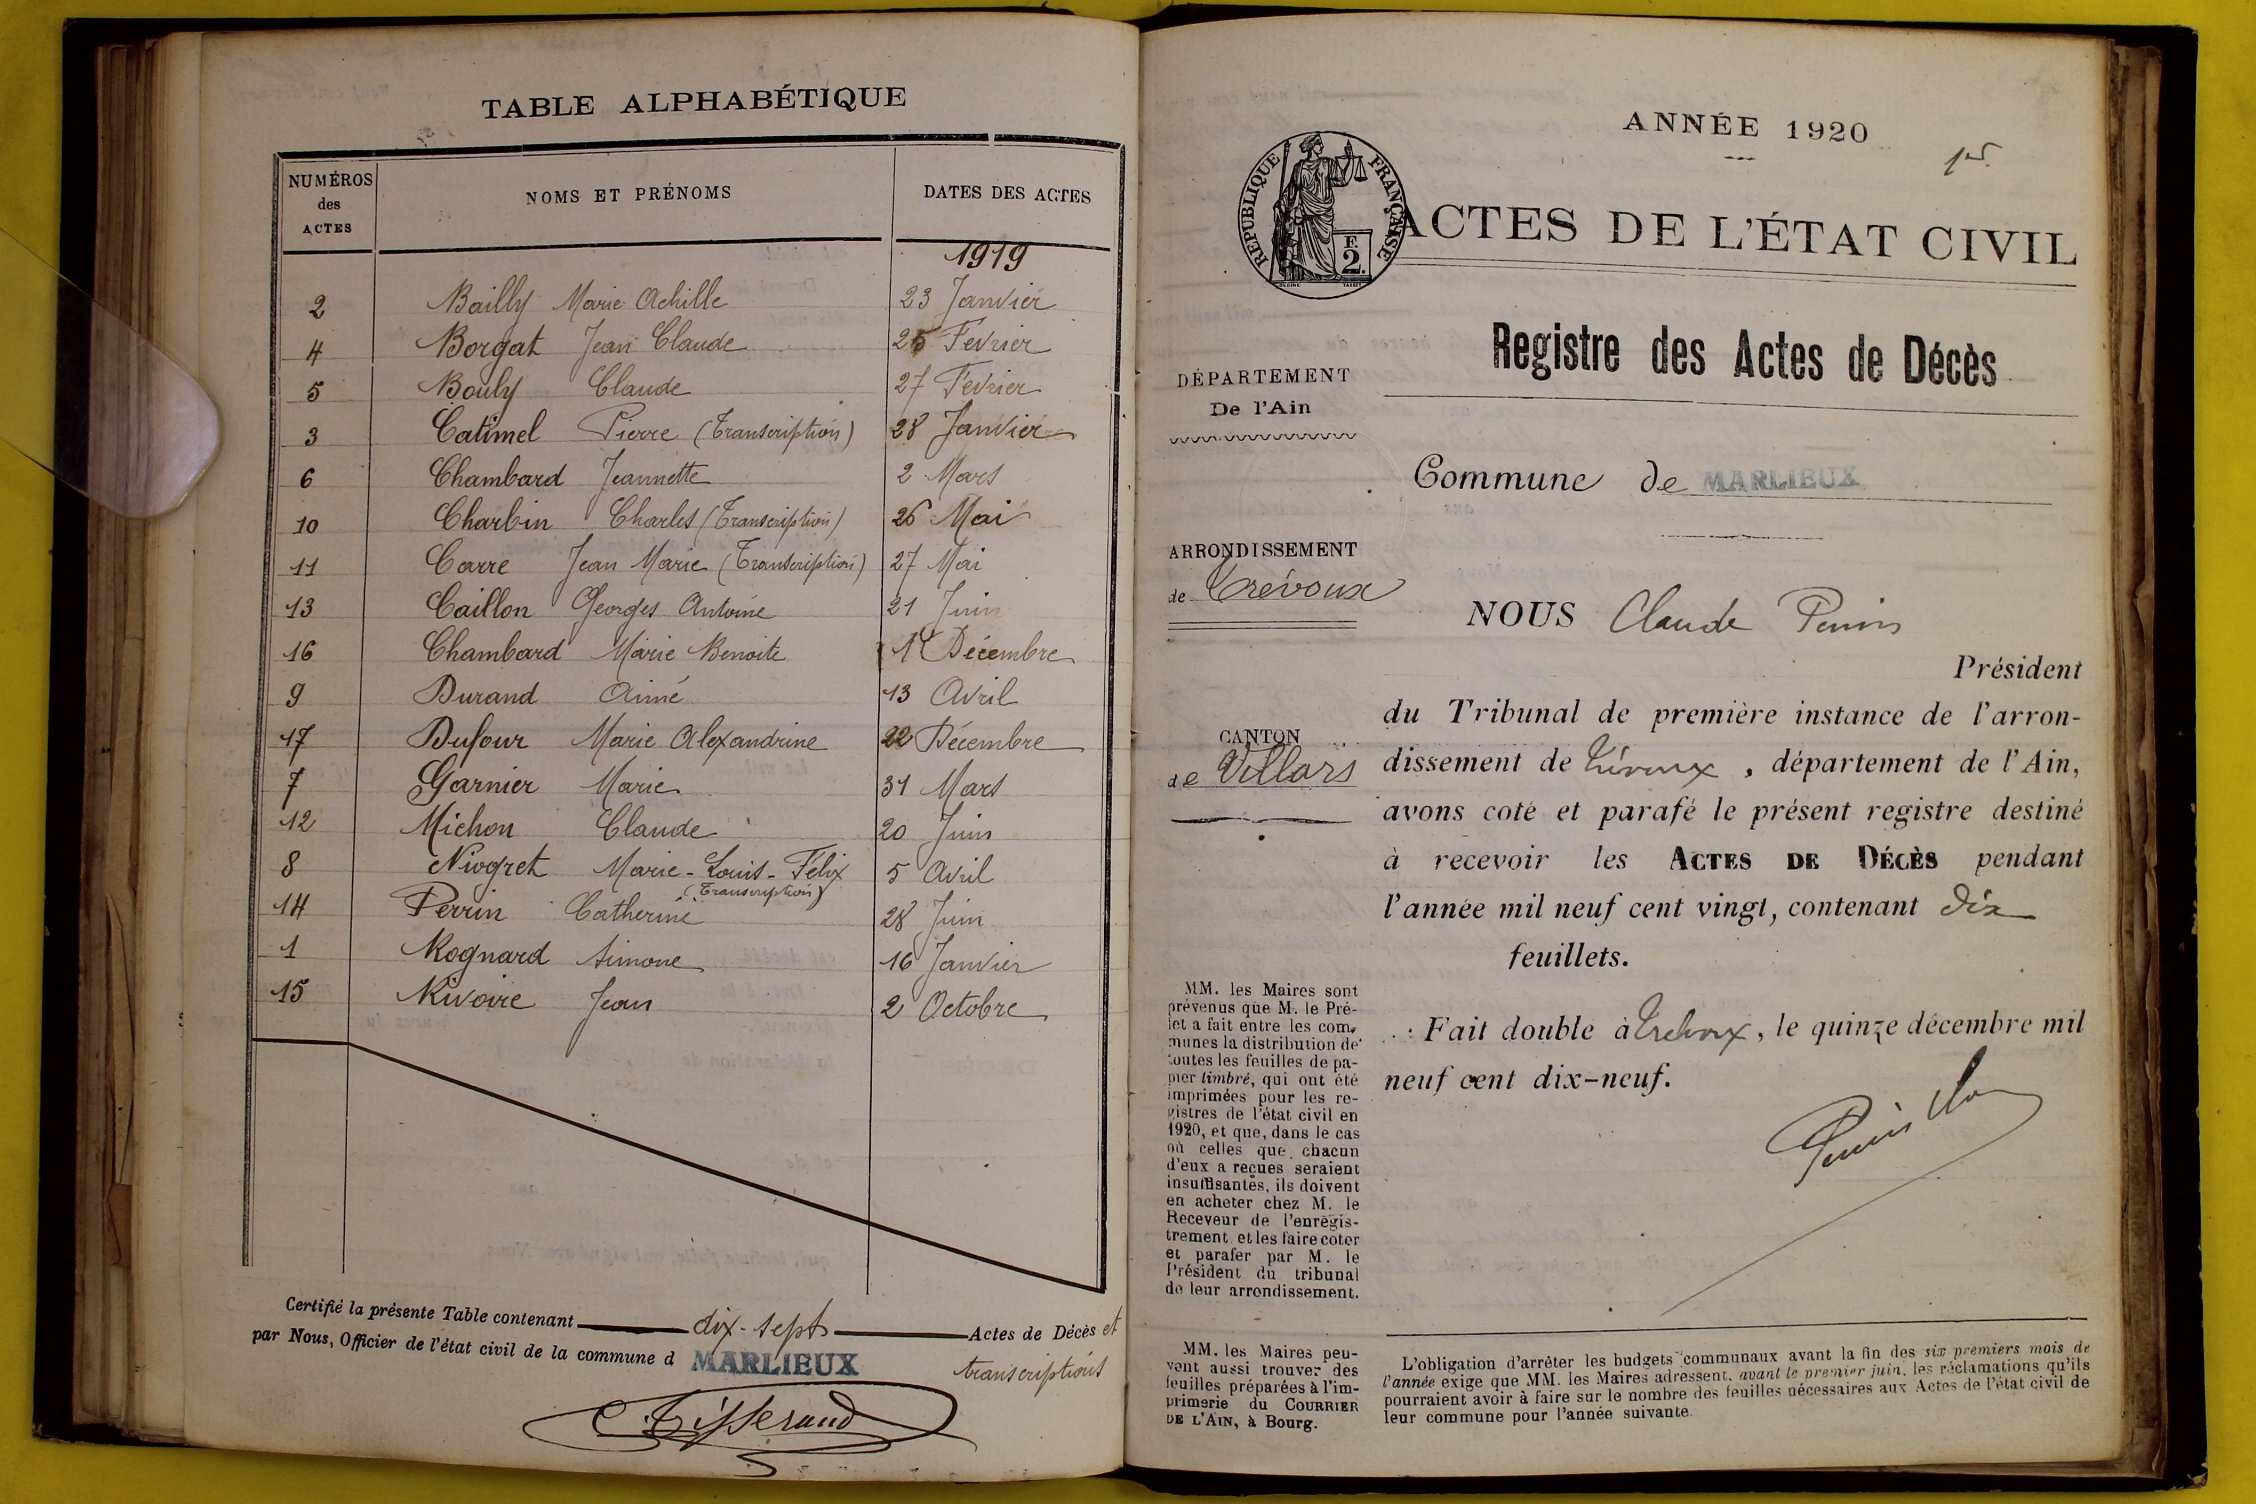 TABLE ALPHABÉTIQUE
NUMÉROS des ACTES NOMS ET PRÉNOMS DATES DES ACTES
1919
2 Bailly Marie Achille 23 Janvier
4 Borgat Jean Claude 25 Fevrier
5 Bouly Claude 27 Fevrier
3 Catimel Pierre (Transcription) 28 Janvier
6 Chambard Jeannette 2 Mars
10 Charbin Charles (Transcription) 26 Mai
11 Carre Jean Marie (Transcription) 27 Mai
13 Caillon Georges Antoine 21 Juin
16 Chambard Marie Benoite Décembre
9 Durand Aimé 13 Avril
17 Dufour Marie Alexandrine 22 Décembre
7 Garnier Marie 31 Mars
12 Michon Claude 20 Juin
8 Niogret Marie-Louis-Félix 5 Avril
(Transcription)
14 Perrin Catherine 28 Juin
1 Rognard Simone 16 Janvier
15 Rivoire Jean 2 Octobre
Certifié la présente Table contenant dix-sept Actes de Décès et
par Nous, Officier de l'état civil de la commune d MARLIEUX transcriptions
Tisserand
ANNÉE 1920
1er
RÉPUBLIQUE FRANÇAISE
F.
2.
ACTES DE L'ÉTAT CIVIL
Registre des Actes de Décès
DÉPARTEMENT
De l'Ain
Commune de MARLIEUX
ARRONDISSEMENT
de Trévoux
NOUS Claude Perrin
Président
du Tribunal de première instance de l'arron-
CANTON
de Villars
dissement de Trévoux, département de l'Ain,
avons coté et parafé le présent registre destiné
à recevoir les ACTES DE DÉCÈS pendant
l'année mil neuf cent vingt, contenant dix
feuillets.
Fait double à Trévoux, le quinze décembre mil
neuf cent dix-neuf.
MM. les Maires sont
prévenus que M. le Pré-
fet a fait entre les com-
munes la distribution de
toutes les feuilles de pa-
pier timbré, qui ont été
imprimées pour les re-
gistres de l'état civil en
1920, et que, dans le cas
où celles que chacun
d'eux a reçues seraient
insuffisantes, ils doivent
en acheter chez M. le
Receveur de l'enregis-
trement et les faire coter
et parafer par M. le
Président du tribunal
de leur arrondissement.
MM. les Maires peu-
vent aussi trouver des
feuilles préparées à l'im-
primerie du COURRIER
DE L'AIN, à Bourg.
L'obligation d'arrêter les budgets communaux avant la fin des six premiers mois de
l'année exige que MM. les Maires adressent, avant le premier juin, les réclamations qu'ils
pourraient avoir à faire sur le nombre des feuilles nécessaires aux Actes de l'état civil de
leur commune pour l'année suivante.